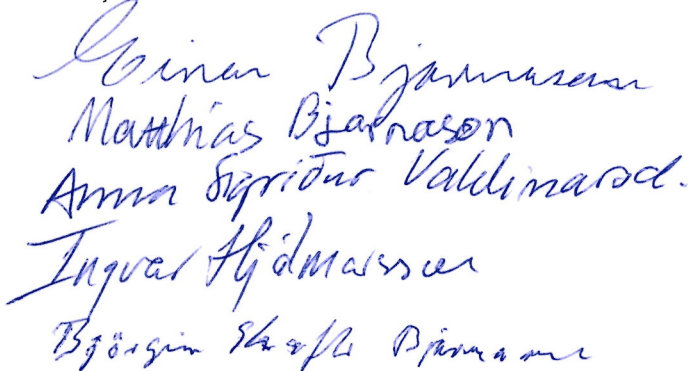 Einar Bjarnason
Matthías Bjarnason
Anna Sigríður Valdimarsd.
Ingvar Hjálmarsson
Björgvin Skafti Bjarnason